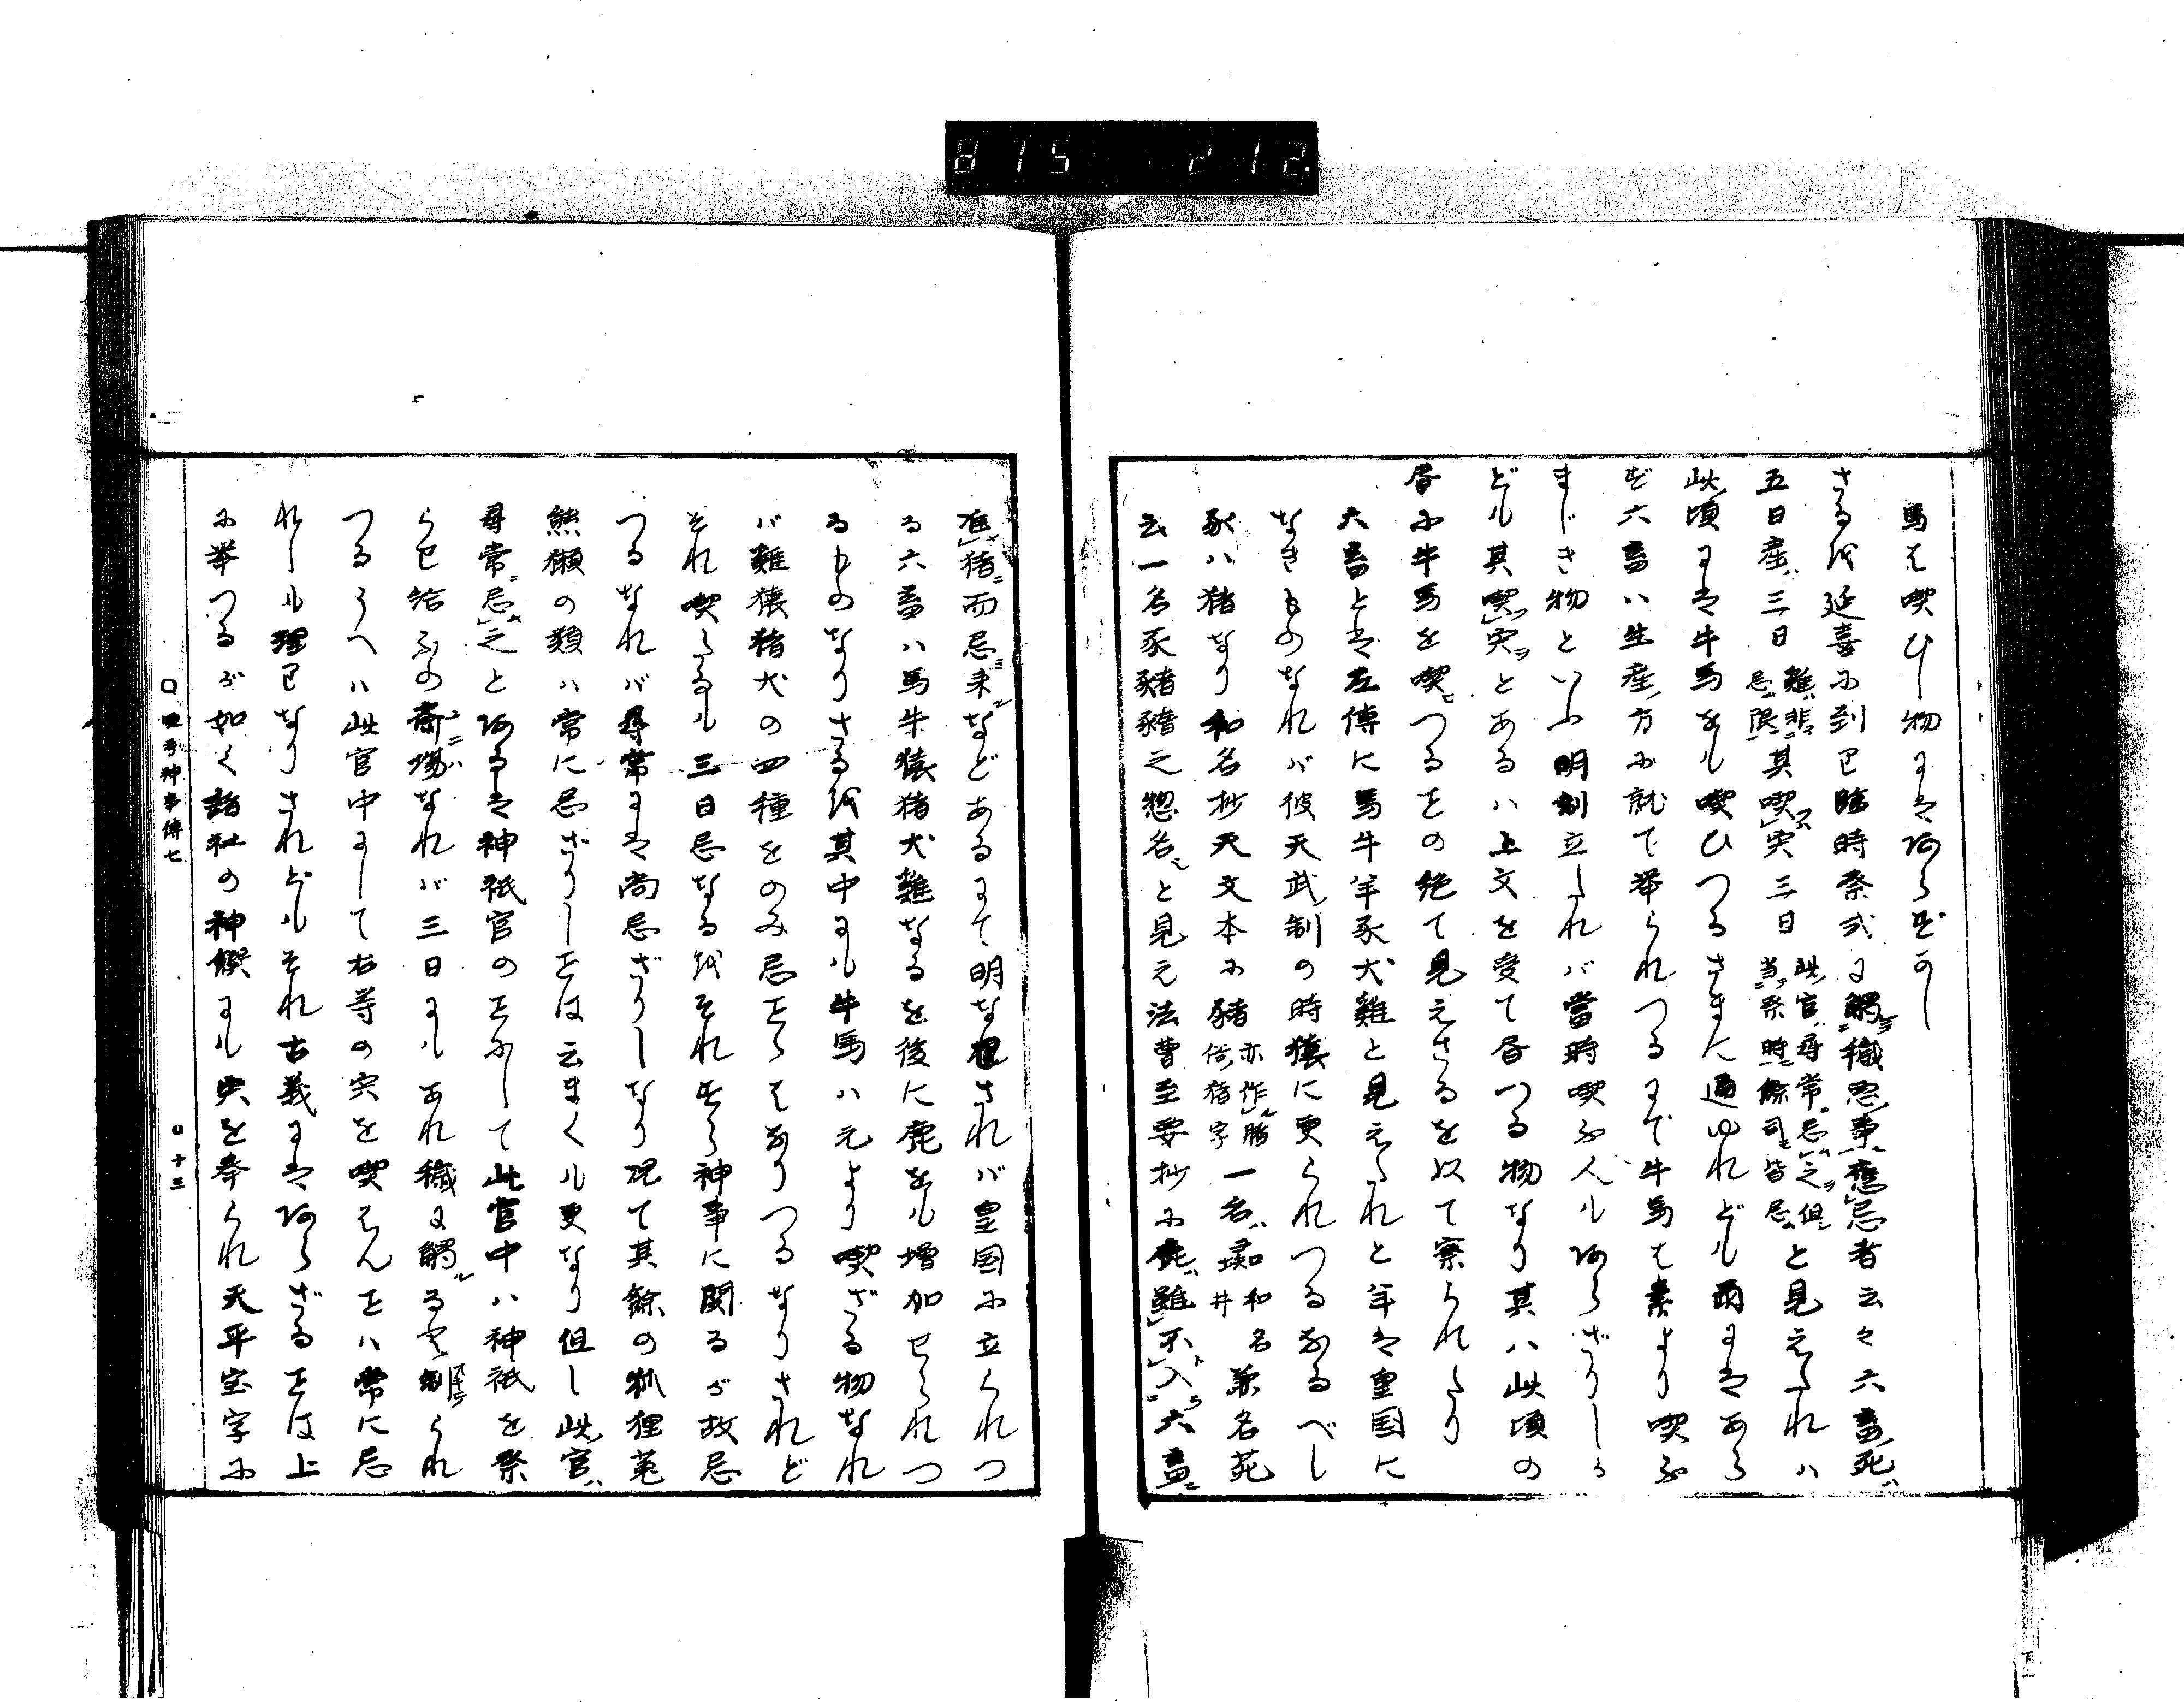 815 212
馬は喫ひし物には阿らぢかし
さるを延喜に到り臨時祭式に觸穢惡事應忌者云々六畜死
五日産三日 雞非忌限 其喫宍三日 此官尋常忌之但当祭時餘司皆忌 と見えたれハ
此頃には牛馬をも喫ひつるさまに通ゆれども爾にはあら
ず六畜ハ生産方に就て挙られつるまで牛馬は素より喫ふ
まじき物といふ明制立たれバ當時喫ふ人も阿らざりしか
ども其喫宍とあるハ上文を受て育つる物なり其ハ此頃の
昔に牛馬を喫つるをの絶て見えさるを以て察られたり
六畜とは左傳に馬牛羊豕犬雞と見えたれと羊は皇国に
なきものなれバ彼天武制の時猿に更られつるなるべし
豕ハ猪なり和名抄天文本に豬 亦作腊俗猪字 一名 和名井 和名 兼名苑
云一名豕豬豬之惣名と見え法曹至要抄に鹿雖不入六畜
准猪而忌来などあるにて明なりされバ皇国に立られつ
る六畜ハ馬牛猿猪犬雞なるを後に鹿をも増加せられつ
るものなりさるを其中にも牛馬ハ元より喫ざる物なれ
バ雞猿猪犬の四種をのみ忌をらはありつるなりされど
それ喫たるも三日忌なるをそれすら神事に関るが故忌
つるなれバ尋常には尚忌ざりしなり况て其餘の狐狸菟
熊獺の類ハ常に忌ざりしをは云まくも更なり但し此官
尋常忌之と阿るは神祇官のをにして此官中ハ神祇を祭
らせ給ふの齋場なれバ三日にもあれ穢に觸るを制られ
つるうへハ此官中にして右等の宍を喫はんをハ常に忌
れしも理りなりされどもそれ古義には阿らざるをは上
に挙つるが如く諸社の神饌にも宍を奉られ天平宝字に
神事傳七
十三